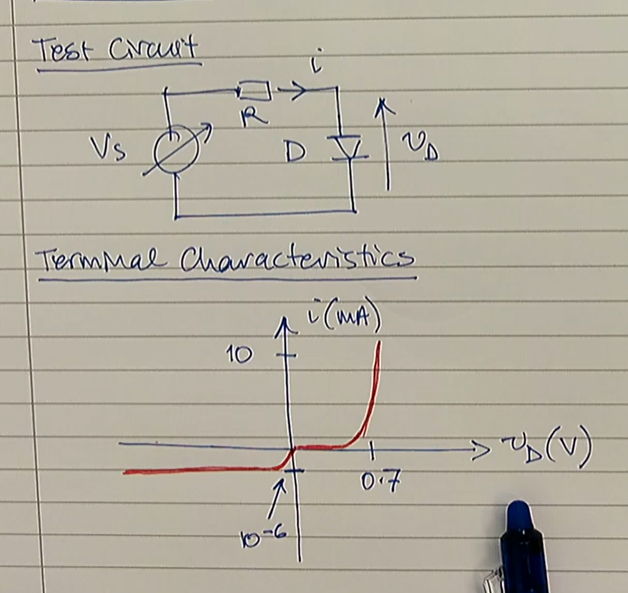 Test Circuit
i
R
Vs
D
v_D
Terminal Characteristics
i(mA)
10
v_D(V)
0.7
10^-6